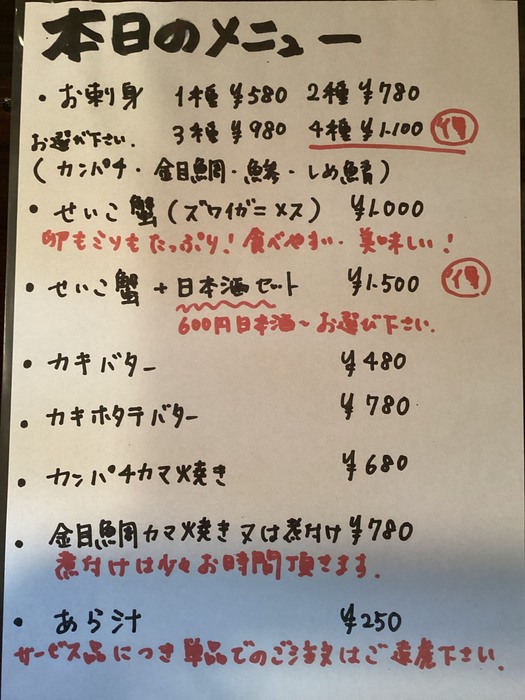 本日のメニュー
・お刺身 1種 ¥580 2種 ¥780
お選び下さい. 3種 ¥980 4種 ¥1.100 得
(カンパチ・金目鯛・鯵・しめ鯖)
・せいこ蟹(ズワイガニメス) ¥1.000
卵もミソもたっぷり!食べやすい・美味しい!
・せいこ蟹+日本酒セット ¥1.500 得
600円日本酒〜お選び下さい.
・カキバター ¥480
・カキホタテバター ¥780
・カンパチカマ焼き ¥680
・金目鯛カマ焼き又は煮付け ¥780
煮付けは少々お時間頂きます.
・あら汁 ¥250
サービス品につき単品でのご注文はご遠慮下さい.